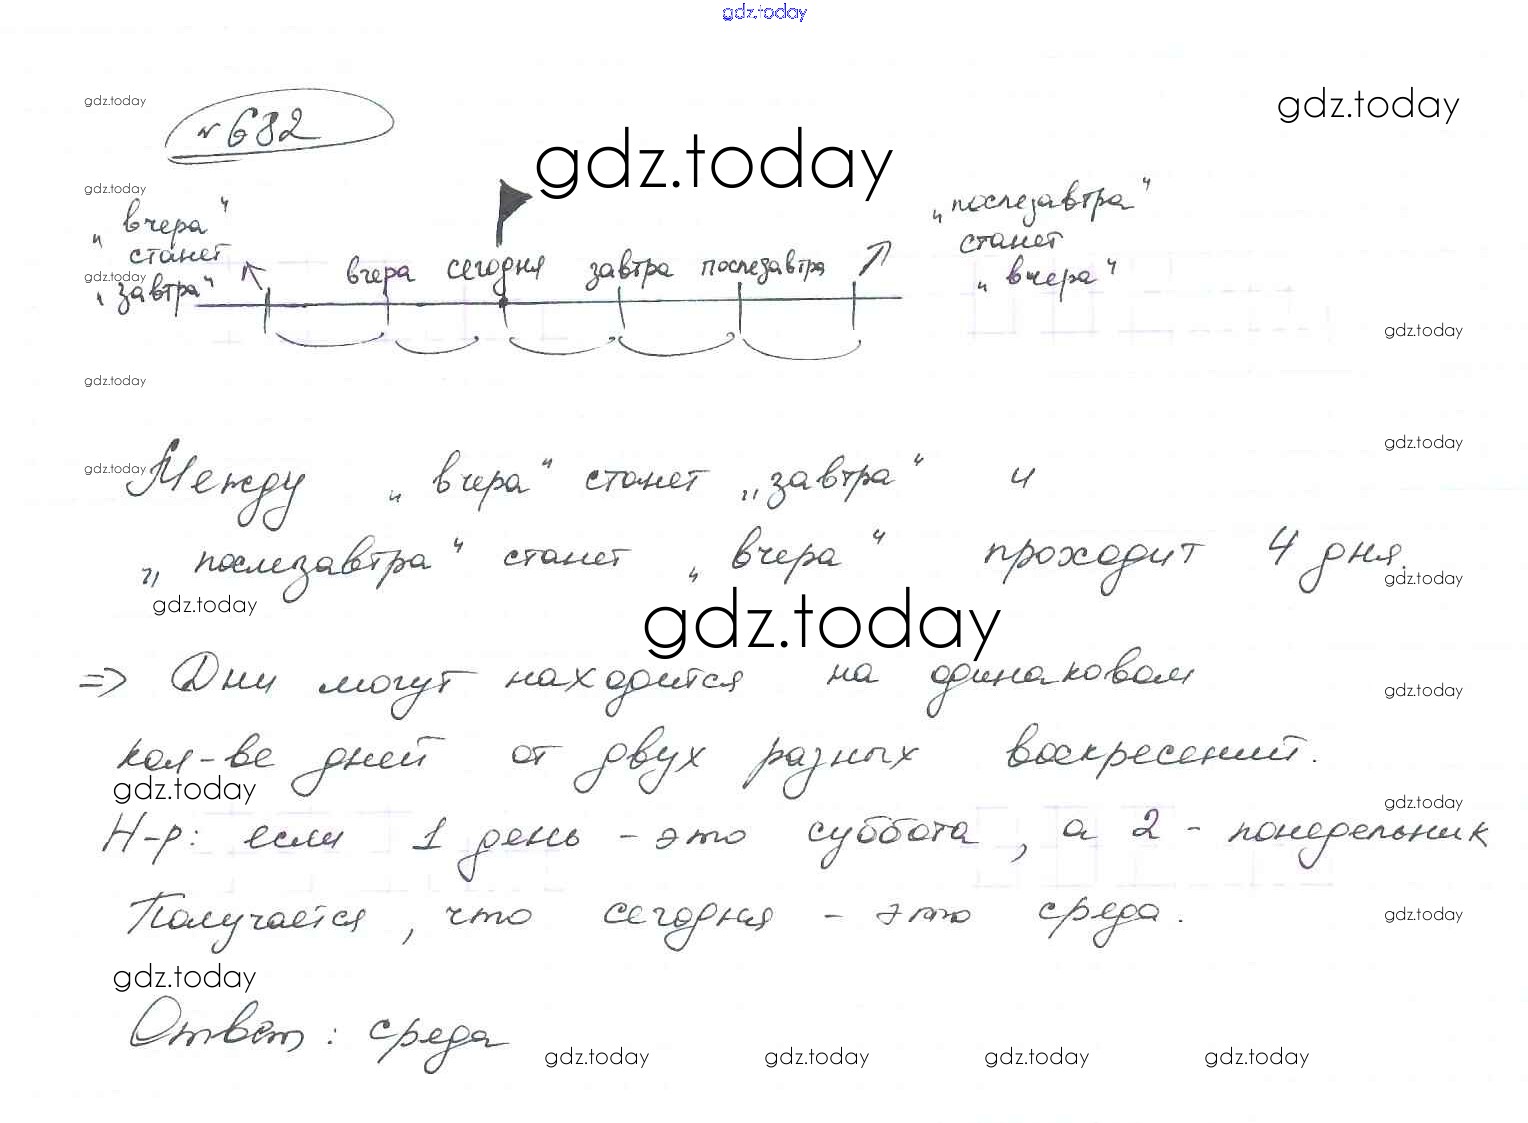 gdz.today
gdz.today
gdz.today
№ 682
gdz.today
gdz.today
„вчера“
станет
„завтра“
gdz.today
вчера сегодня завтра послезавтра
„послезавтра“
станет
„вчера“
gdz.today
gdz.today
gdz.today
gdz.today
Между „вчера“ станет „завтра“ и
„послезавтра“ станет „вчера“ проходит 4 дня.
gdz.today
gdz.today
gdz.today
=> Дни могут находится на одинаковом
gdz.today
кол-ве дней от двух разных воскресений.
gdz.today
gdz.today
Н-р: если 1 день - это суббота, а 2 - понедельник
Получается, что сегодня - это среда.
gdz.today
gdz.today
Ответ: среда
gdz.today gdz.today gdz.today gdz.today